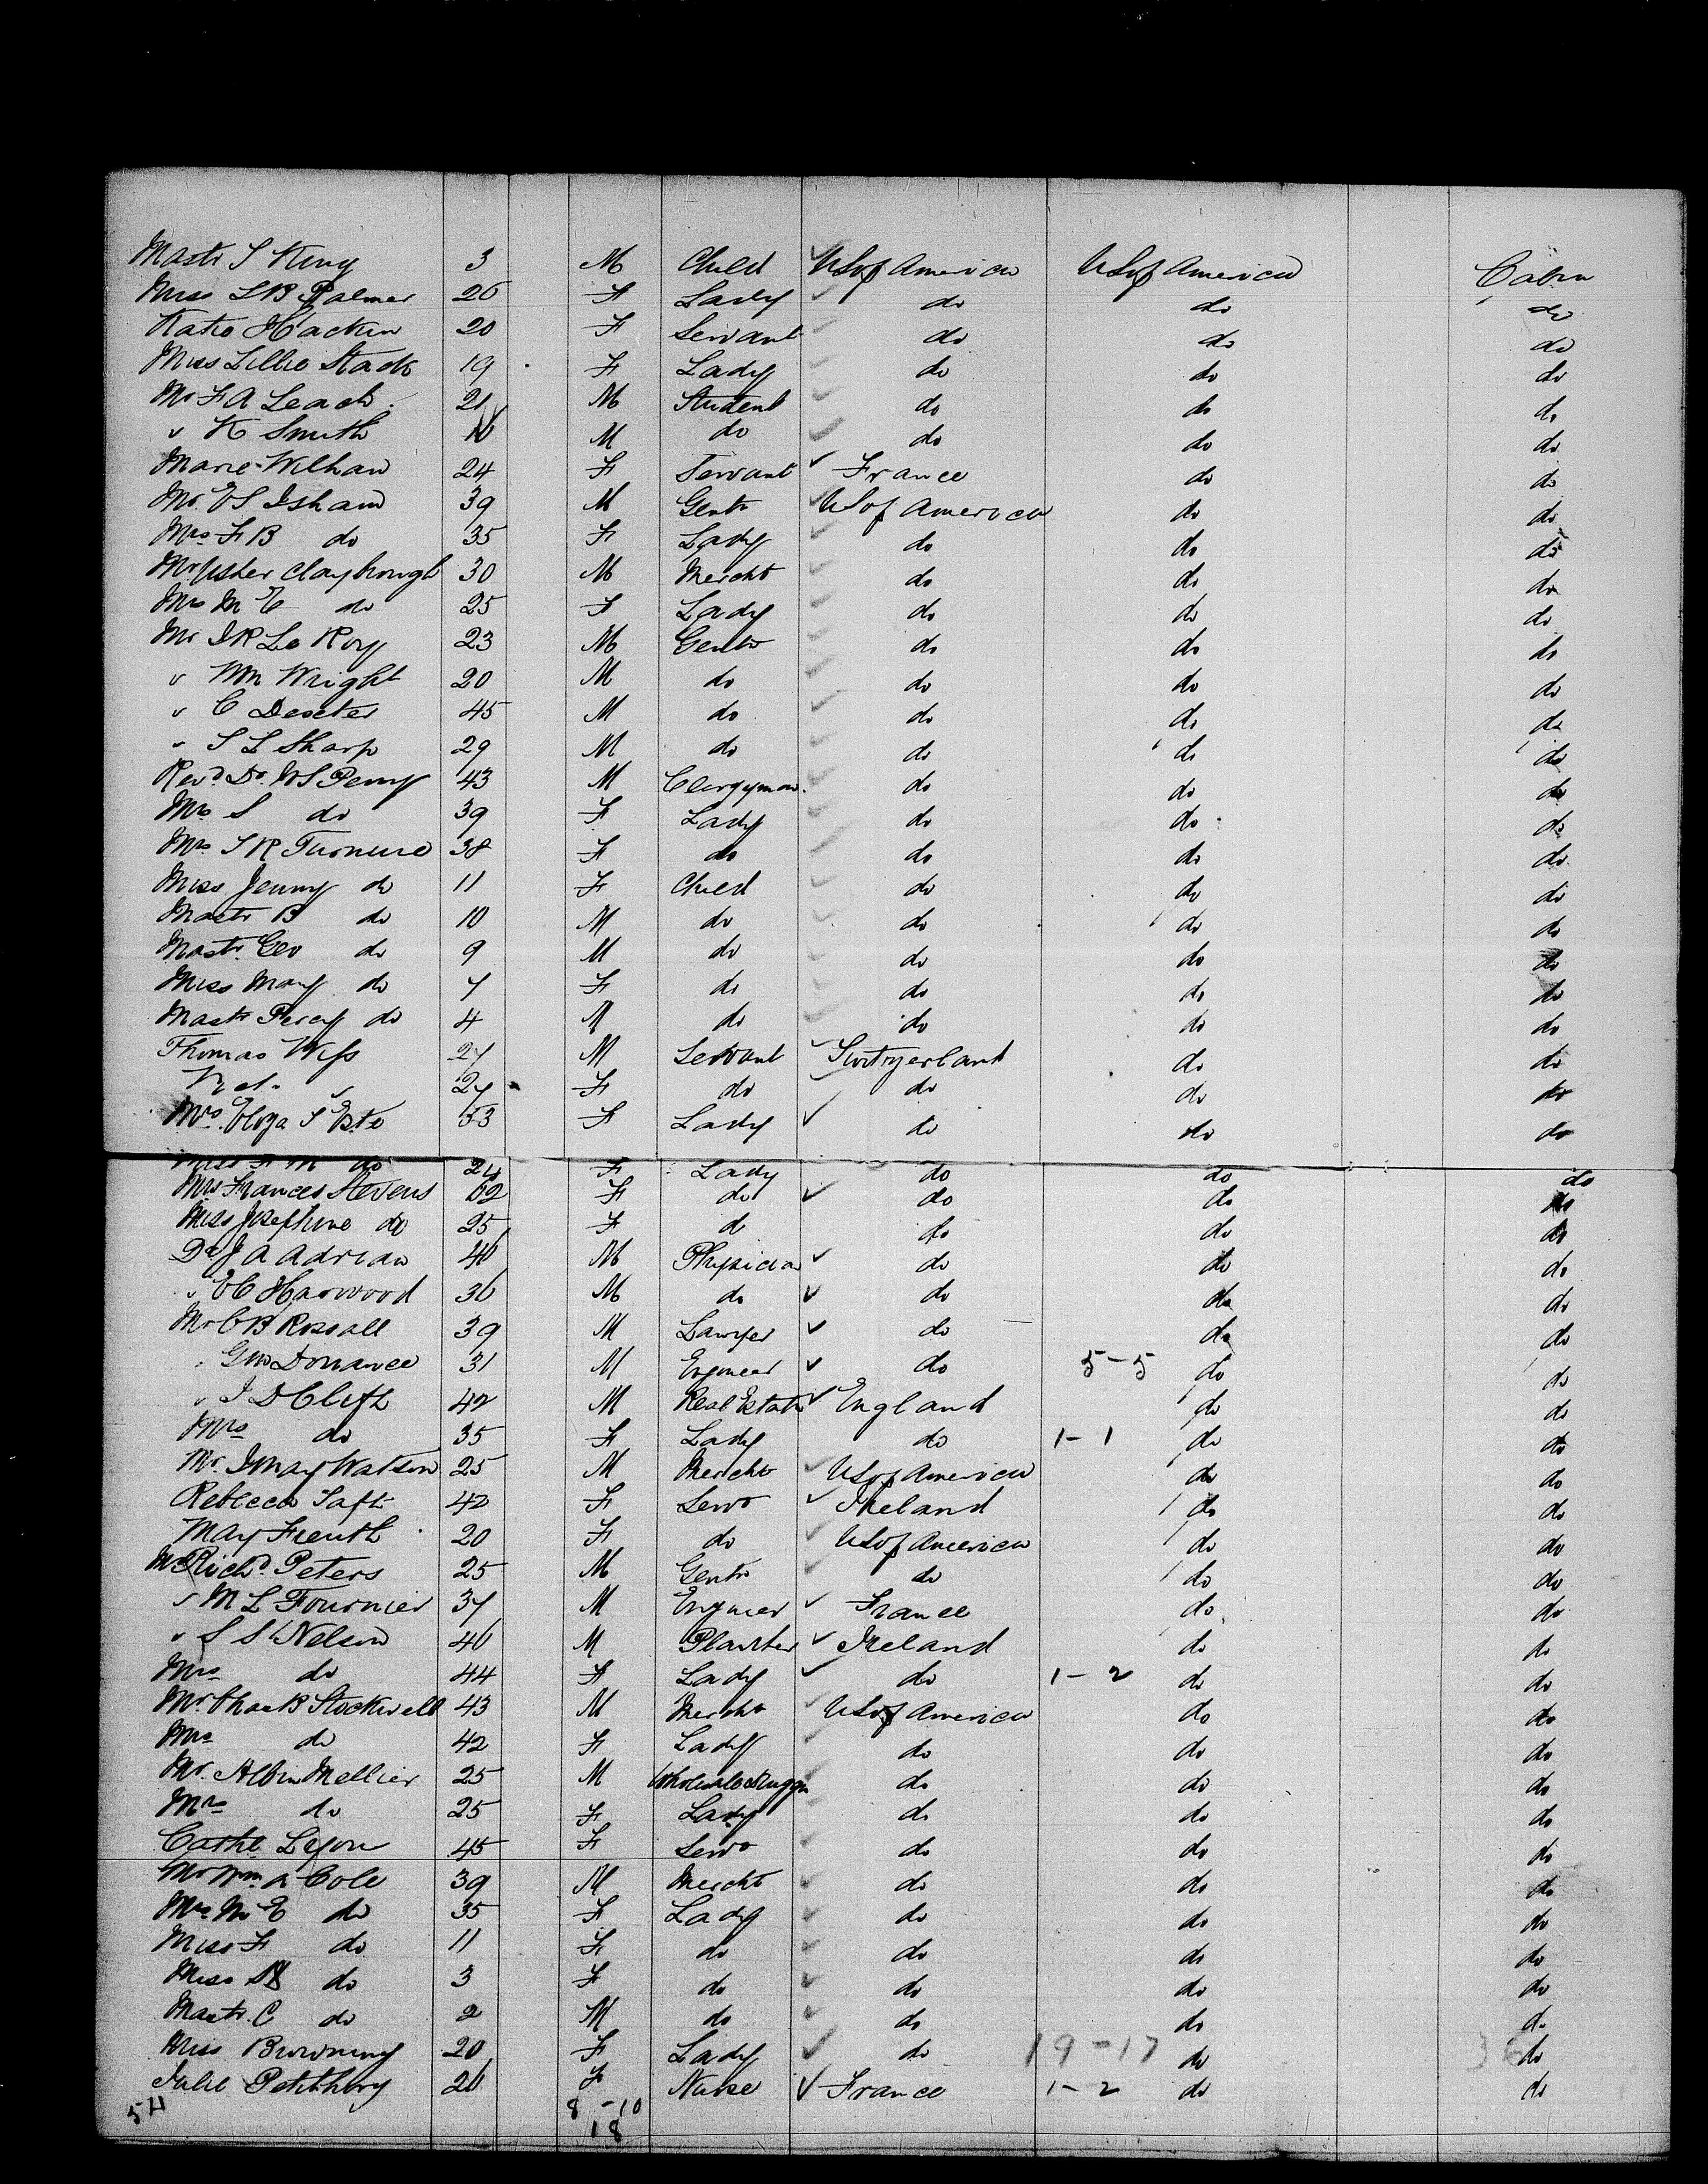 Mastr S King 3 M Child ✓ US of America US of America Cabin
Miss L B Palmer 26 F Lady ✓ do do do
Katie Hackin 20 F Servant ✓ do do do
Miss Lillie Stack 19 F Lady ✓ do do do
Mr F A Leach 21 M Student ✓ do do do
" K Smith M do ✓ do do do
Marie Welhau 24 F Servant ✓ France do do
Mr. E S Isham 39 M Gentn ✓ US of America do do
Mrs F B do 35 F Lady ✓ do do do
Mr Usher Claybrough 30 M Mercht ✓ do do do
Mrs M E do 25 F Lady ✓ do do do
Mr J R Le Roy 23 M Gentn ✓ do do do
" Wm Wright 20 M do ✓ do do do
" C Dexter 45 M do ✓ do do do
" S L Sharp 29 M do ✓ do do do
Revd. Dr. W S Perry 43 M Clergyman ✓ do do do
Mrs S do 39 F Lady ✓ do do do
Mrs. S R Turnure 38 F do ✓ do do do
Miss Jenny do 11 F Child ✓ do do do
Mastr B do 10 M do ✓ do do do
Mastr. Geo do 9 M do ✓ do do do
Miss Mary do 7 F do ✓ do do do
Mastr Percy do 4 M do ✓ do do do
Thomas Wyss 27 M Servant ✓ Switzerland do do
" 27 F do ✓ do do do
Mrs. Eliza S Este 53 F Lady ✓ do do do
Miss F M do 24 F Lady do do do
Mrs Frances Stevens 62 F do ✓ do do do
Miss Josephine do 25 F do do do do
Dr J A Adrian 46 M Physician ✓ do do do
" E C Harwood 36 M do ✓ do do do
Mr C B Rossall 39 M Lawyer ✓ do do do
" Gus Dorrance 31 M Engineer ✓ do 5-5 do do
" J D Clift 42 M Real Estate ✓ England do do
Mrs do 35 F Lady do 1-1 do do
Mr. J May Watson 25 M Mercht ✓ US of America do do
Rebecca Taft 42 F Servt ✓ Ireland do do
May French 20 F do ✓ US of America do do
Mr Richd. Peters 25 M Gentn ✓ do do do
" M L Fournier 37 M Engineer ✓ France do do
" S S Nelson 46 M Planter ✓ Ireland do do
Mrs do 44 F Lady ✓ do 1-2 do do
Mr. Chas B Stockwell 43 M Mercht ✓ US of America do do
Mrs do 42 F Lady ✓ do do do
Mr. Albin Mellier 25 M Wholesale Druggn ✓ do do do
Mrs do 25 F Lady ✓ do do do
Cathe Lyon 45 F Servt ✓ do do do
Mr Wm A Cole 39 M Mercht ✓ do do do
Mrs M E do 35 F Lady ✓ do do do
Miss F do 11 F do ✓ do do do
Miss do 3 F do ✓ do do do
Mastr. C do 2 M do ✓ do do do
Miss Browning 20 F Lady ✓ do 19-17 do 36 do
Julie Petithory 26 F Nurse ✓ France 1-2 do do
54 8-10
18